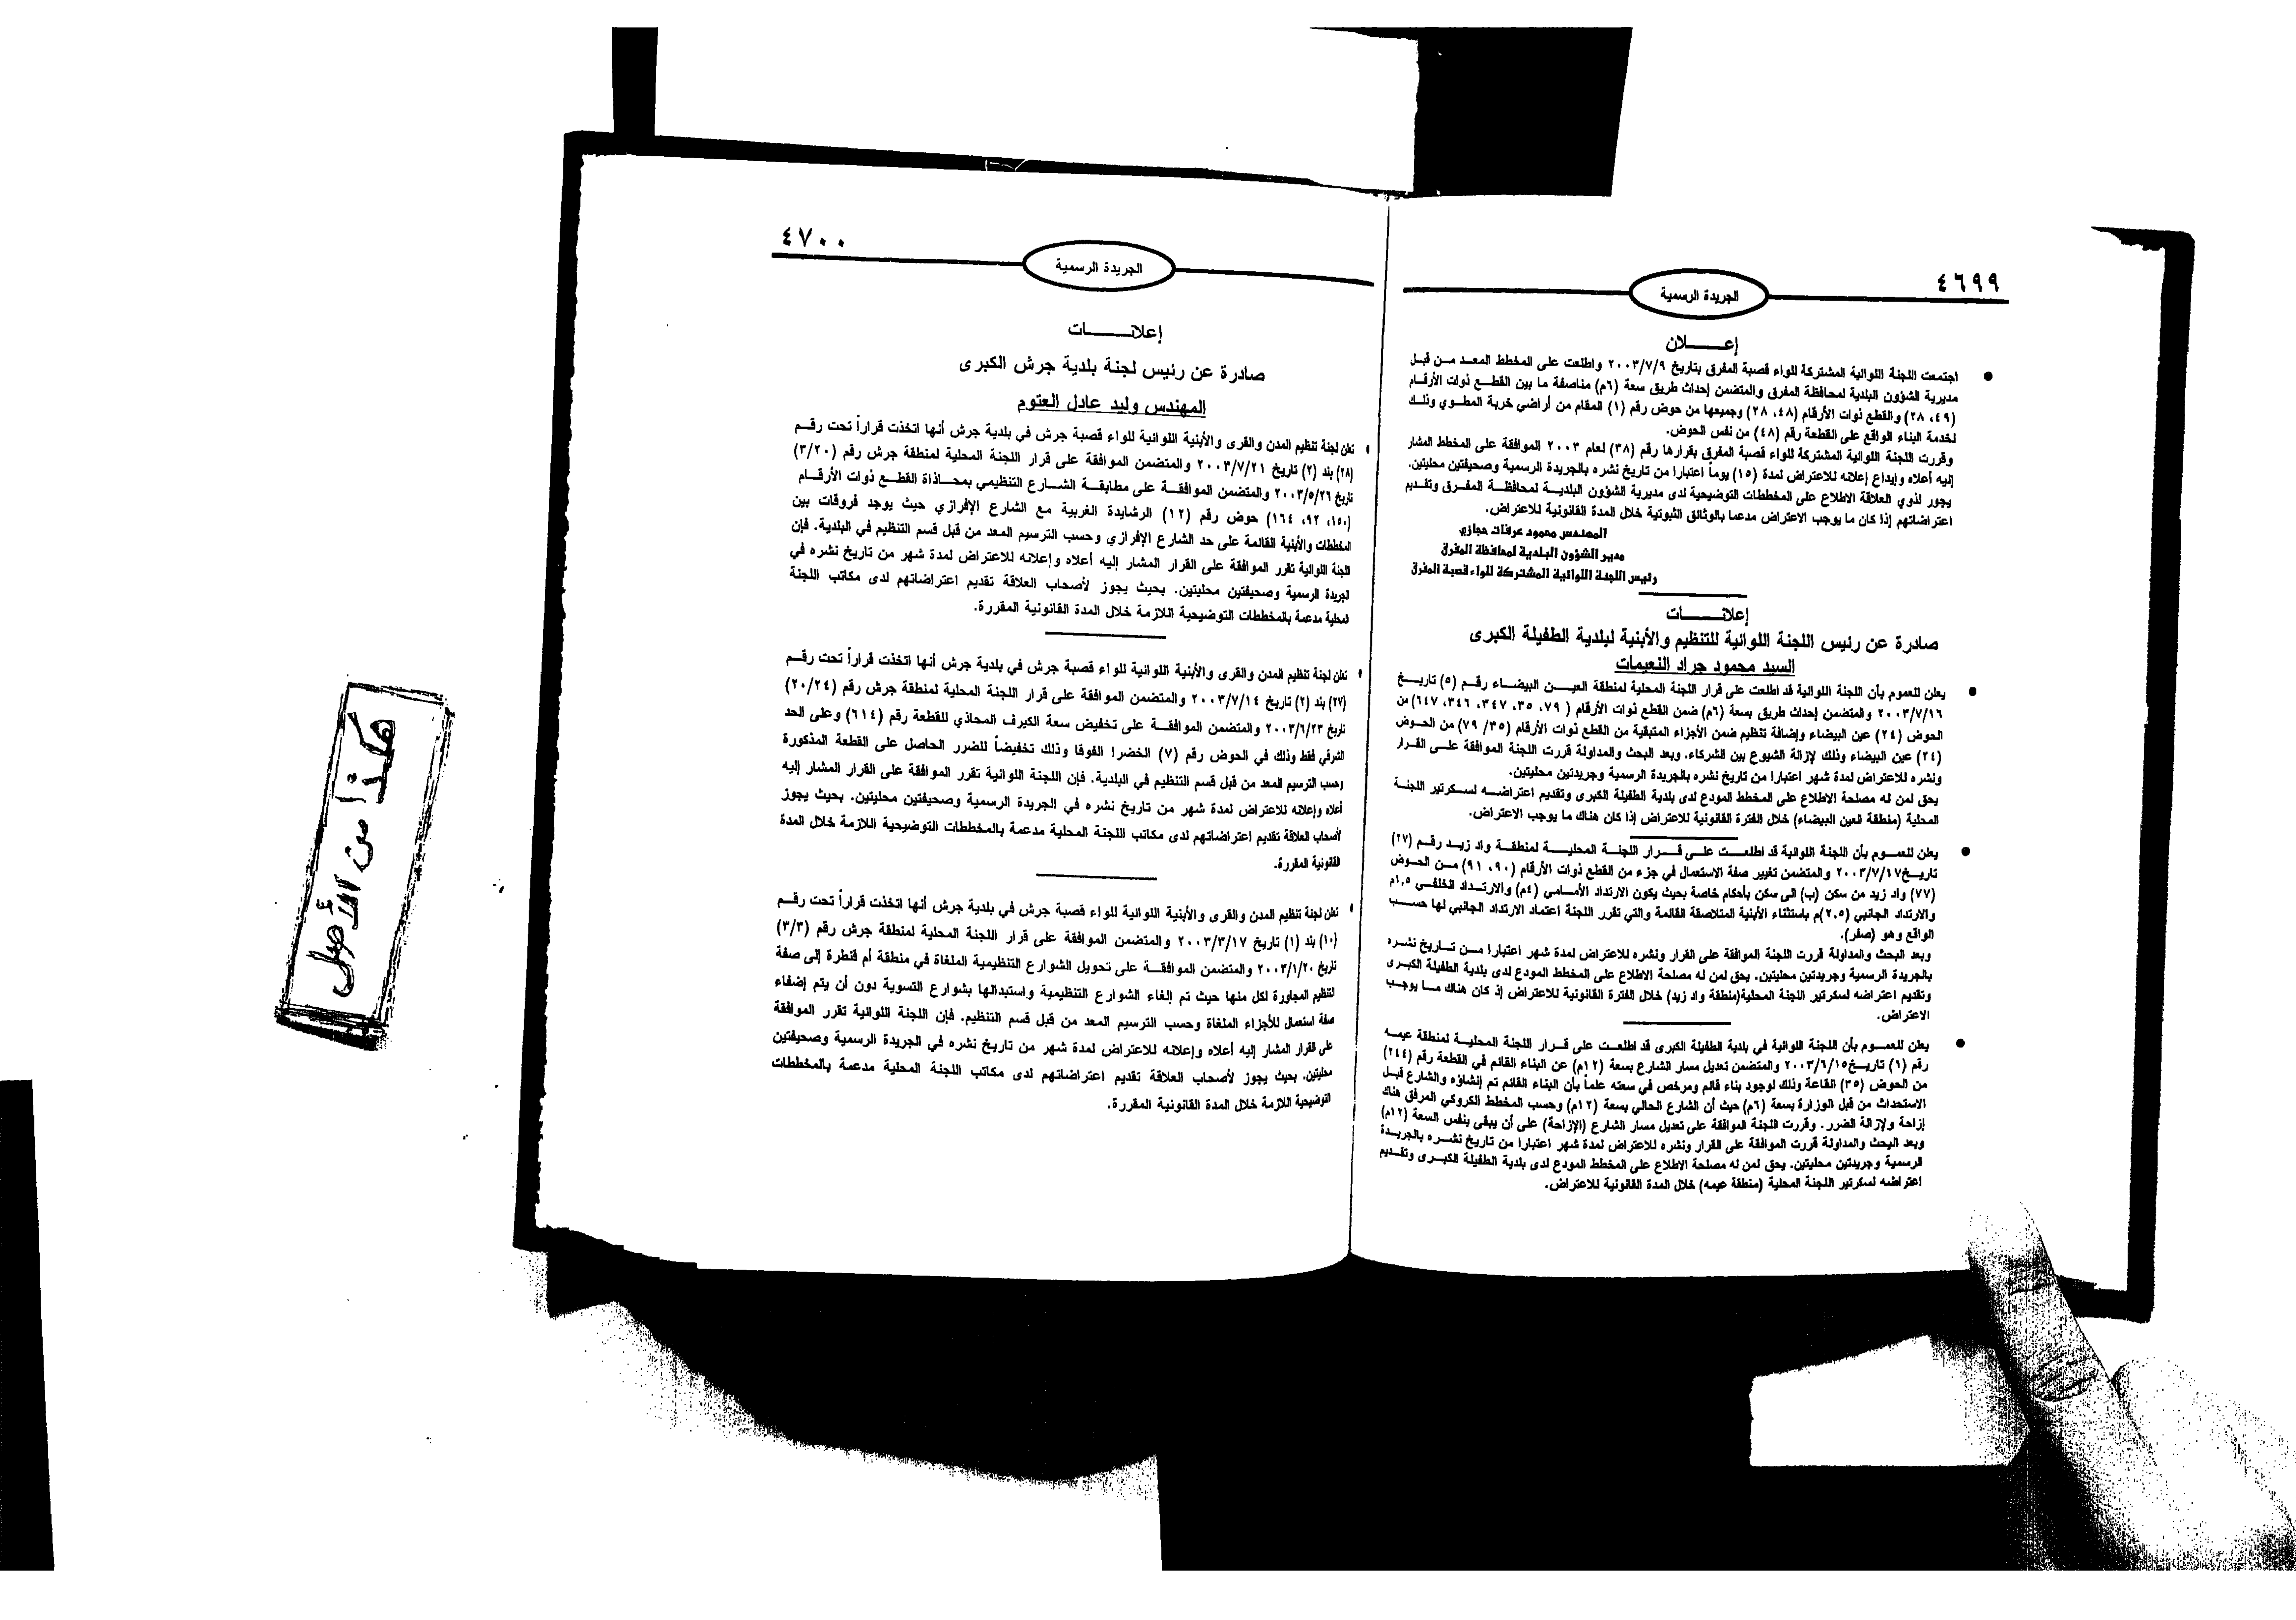 ٤٦٩٩
الجريدة الرسمية
إعـــــلان
● اجتمعت اللجنة اللوائية المشتركة للواء قصبة المفرق بتاريخ ٢٠٠٣/٧/٩ واطلعت على المخطط المعد من قبل
مديرية الشؤون البلدية لمحافظة المفرق والمتضمن إحداث طريق سعة (٦م) مناصفة ما بين القطع ذوات الأرقام
(٤٩، ٢٨) والقطع ذوات الأرقام (٤٨، ٢٨) وجميعها من حوض رقم (١) المقام من أراضي خربة المطوي وذلك
لخدمة البناء الواقع على القطعة رقم (٤٨) من نفس الحوض.
وقررت اللجنة اللوائية المشتركة للواء قصبة المفرق بقرارها رقم (٣٨) لعام ٢٠٠٣ الموافقة على المخطط المشار
إليه أعلاه وإيداع إعلانه للاعتراض لمدة (١٥) يوماً اعتبارا من تاريخ نشره بالجريدة الرسمية وصحيفتين محليتين.
يجوز لذوي العلاقة الاطلاع على المخططات التوضيحية لدى مديرية الشؤون البلدية لمحافظة المفرق وتقديم
اعتراضاتهم إذا كان ما يوجب الاعتراض مدعما بالوثائق الثبوتية خلال المدة القانونية للاعتراض.
المهندس محمود عرفات حجازي
مدير الشؤون البلدية لمحافظة المفرق
رئيس اللجنة اللوائية المشتركة للواء قصبة المفرق
إعلانـــــات
صادرة عن رئيس اللجنة اللوائية للتنظيم والأبنية لبلدية الطفيلة الكبرى
السيد محمود جراد النعيمات
● يعلن للعموم بأن اللجنة اللوائية قد اطلعت على قرار اللجنة المحلية لمنطقة العين البيضاء رقم (٥) تاريخ
٢٠٠٣/٧/١٦ والمتضمن إحداث طريق بسعة (٦م) ضمن القطع ذوات الأرقام (٧٩، ٣٥، ٣٤٧، ٣٤٦، ٦٤٧) من
الحوض (٢٤) عين البيضاء وإضافة تنظيم ضمن الأجزاء المتبقية من القطع ذوات الأرقام (٣٥/ ٧٩) من الحوض
(٢٤) عين البيضاء وذلك لإزالة الشيوع بين الشركاء. وبعد البحث والمداولة قررت اللجنة الموافقة على القرار
ونشره للاعتراض لمدة شهر اعتبارا من تاريخ نشره بالجريدة الرسمية وجريدتين محليتين.
يحق لمن له مصلحة الاطلاع على المخطط المودع لدى بلدية الطفيلة الكبرى وتقديم اعتراضه لسكرتير اللجنة
المحلية (منطقة العين البيضاء) خلال الفترة القانونية للاعتراض إذا كان هناك ما يوجب الاعتراض.
● يعلن للعموم بأن اللجنة اللوائية قد اطلعت على قرار اللجنة المحلية لمنطقة واد زيد رقم (٢٧)
تاريخ٢٠٠٣/٧/١٧ والمتضمن تغيير صفة الاستعمال في جزء من القطع ذوات الأرقام (٩٠، ٩١) من الحوض
(٧٧) واد زيد من سكن (ب) الى سكن بأحكام خاصة بحيث يكون الارتداد الأمامي (٤م) والارتداد الخلفي ١,٥م
والارتداد الجانبي (٢,٥)م باستثناء الأبنية المتلاصقة القائمة والتي تقرر اللجنة اعتماد الارتداد الجانبي لها حسب
الواقع وهو (صفر).
وبعد البحث والمداولة قررت اللجنة الموافقة على القرار ونشره للاعتراض لمدة شهر اعتبارا من تاريخ نشره
بالجريدة الرسمية وجريدتين محليتين. يحق لمن له مصلحة الاطلاع على المخطط المودع لدى بلدية الطفيلة الكبرى
وتقديم اعتراضه لسكرتير اللجنة المحلية(منطقة واد زيد) خلال الفترة القانونية للاعتراض إذ كان هناك ما يوجب
الاعتراض.
● يعلن للعموم بأن اللجنة اللوائية في بلدية الطفيلة الكبرى قد اطلعت على قرار اللجنة المحلية لمنطقة عيمه
رقم (١) تاريخ٢٠٠٣/٦/١٥ والمتضمن تعديل مسار الشارع بسعة (١٢م) عن البناء القائم في القطعة رقم (٢٤٤)
من الحوض (٣٥) القاعة وذلك لوجود بناء قائم ومرخص في سعته علماً بأن البناء القائم تم إنشاؤه والشارع قبل
الاستحداث من قبل الوزارة بسعة (٦م) حيث أن الشارع الحالي بسعة (١٢م) وحسب المخطط الكروكي المرفق هناك
إزاحة ولإزالة الضرر. وقررت اللجنة الموافقة على تعديل مسار الشارع (الإزاحة) على أن يبقى بنفس السعة (١٢م)
وبعد البحث والمداولة قررت الموافقة على القرار ونشره للاعتراض لمدة شهر اعتبارا من تاريخ نشره بالجريدة
الرسمية وجريدتين محليتين. يحق لمن له مصلحة الاطلاع على المخطط المودع لدى بلدية الطفيلة الكبرى وتقديم
اعتراضه لسكرتير اللجنة المحلية (منطقة عيمه) خلال المدة القانونية للاعتراض.
٤٧٠٠
الجريدة الرسمية
إعلانـــــات
صادرة عن رئيس لجنة بلدية جرش الكبرى
المهندس وليد عادل العتوم
تعلن لجنة تنظيم المدن والقرى والأبنية اللوائية للواء قصبة جرش في بلدية جرش أنها اتخذت قراراً تحت رقم
(٢٨) بند (٢) تاريخ ٢٠٠٣/٧/٢١ والمتضمن الموافقة على قرار اللجنة المحلية لمنطقة جرش رقم (٣/٢٠)
تاريخ ٢٠٠٣/٥/٢٦ والمتضمن الموافقة على مطابقة الشارع التنظيمي بمحاذاة القطع ذوات الأرقام
(١٥٠، ٩٢، ١٦٤) حوض رقم (١٢) الرشايدة الغربية مع الشارع الإفرازي حيث يوجد فروقات بين
المخططات والأبنية القائمة على حد الشارع الإفرازي وحسب الترسيم المعد من قبل قسم التنظيم في البلدية. فإن
اللجنة اللوائية تقرر الموافقة على القرار المشار إليه أعلاه وإعلانه للاعتراض لمدة شهر من تاريخ نشره في
الجريدة الرسمية وصحيفتين محليتين. بحيث يجوز لأصحاب العلاقة تقديم اعتراضاتهم لدى مكاتب اللجنة
المحلية مدعمة بالمخططات التوضيحية اللازمة خلال المدة القانونية المقررة.
تعلن لجنة تنظيم المدن والقرى والأبنية اللوائية للواء قصبة جرش في بلدية جرش أنها اتخذت قراراً تحت رقم
(٢٧) بند (٢) تاريخ ٢٠٠٣/٧/١٤ والمتضمن الموافقة على قرار اللجنة المحلية لمنطقة جرش رقم (٢٠/٢٤)
تاريخ ٢٠٠٣/٦/٢٣ والمتضمن الموافقة على تخفيض سعة الكيرف المحاذي للقطعة رقم (٦١٤) وعلى الحد
الشرقي فقط وذلك في الحوض رقم (٧) الخضرا الفوقا وذلك تخفيضاً للضرر الحاصل على القطعة المذكورة
وحسب الترسيم المعد من قبل قسم التنظيم في البلدية. فإن اللجنة اللوائية تقرر الموافقة على القرار المشار إليه
أعلاه وإعلانه للاعتراض لمدة شهر من تاريخ نشره في الجريدة الرسمية وصحيفتين محليتين. بحيث يجوز
لأصحاب العلاقة تقديم اعتراضاتهم لدى مكاتب اللجنة المحلية مدعمة بالمخططات التوضيحية اللازمة خلال المدة
القانونية المقررة.
تعلن لجنة تنظيم المدن والقرى والأبنية اللوائية للواء قصبة جرش في بلدية جرش أنها اتخذت قراراً تحت رقم
(١٠) بند (١) تاريخ ٢٠٠٣/٣/١٧ والمتضمن الموافقة على قرار اللجنة المحلية لمنطقة جرش رقم (٣/٣)
تاريخ ٢٠٠٣/١/٢٠ والمتضمن الموافقة على تحويل الشوارع التنظيمية الملغاة في منطقة أم قنطرة إلى صفة
التنظيم المجاورة لكل منها حيث تم إلغاء الشوارع التنظيمية واستبدالها بشوارع التسوية دون أن يتم إضفاء
صفة استعمال للأجزاء الملغاة وحسب الترسيم المعد من قبل قسم التنظيم. فإن اللجنة اللوائية تقرر الموافقة
على القرار المشار إليه أعلاه وإعلانه للاعتراض لمدة شهر من تاريخ نشره في الجريدة الرسمية وصحيفتين
محليتين. بحيث يجوز لأصحاب العلاقة تقديم اعتراضاتهم لدى مكاتب اللجنة المحلية مدعمة بالمخططات
التوضيحية اللازمة خلال المدة القانونية المقررة.
هكذا من الأصل